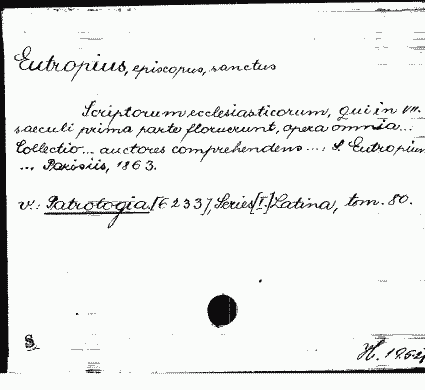 Eutropius, episcopus, sanctus
Scriptorum ecclesiasticorum, qui in VII.
saeculi prima parte floruerunt, opera omnia...
Collectio... auctores comprehendens...: S. Eutropium
... Parisiis, 1863.
v.: Patrologia [E 233], Series [I.] Latina, tom. 80.
S.